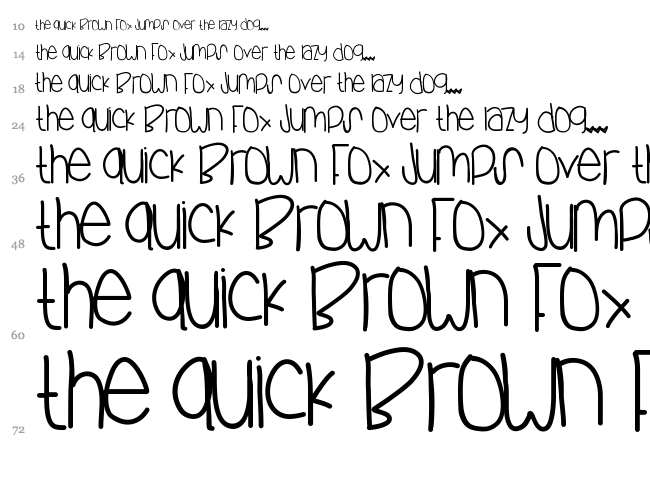 10 the quick Brown Fox Jumps over the lazy dog...
14 the quick Brown Fox Jumps over the lazy dog...
18 the quick Brown Fox Jumps over the lazy dog...
24 the quick Brown Fox Jumps over the lazy dog...
36 the quick Brown Fox Jumps over th
48 the quick Brown Fox Jump
60 the quick Brown Fox
72 the quick Brown F